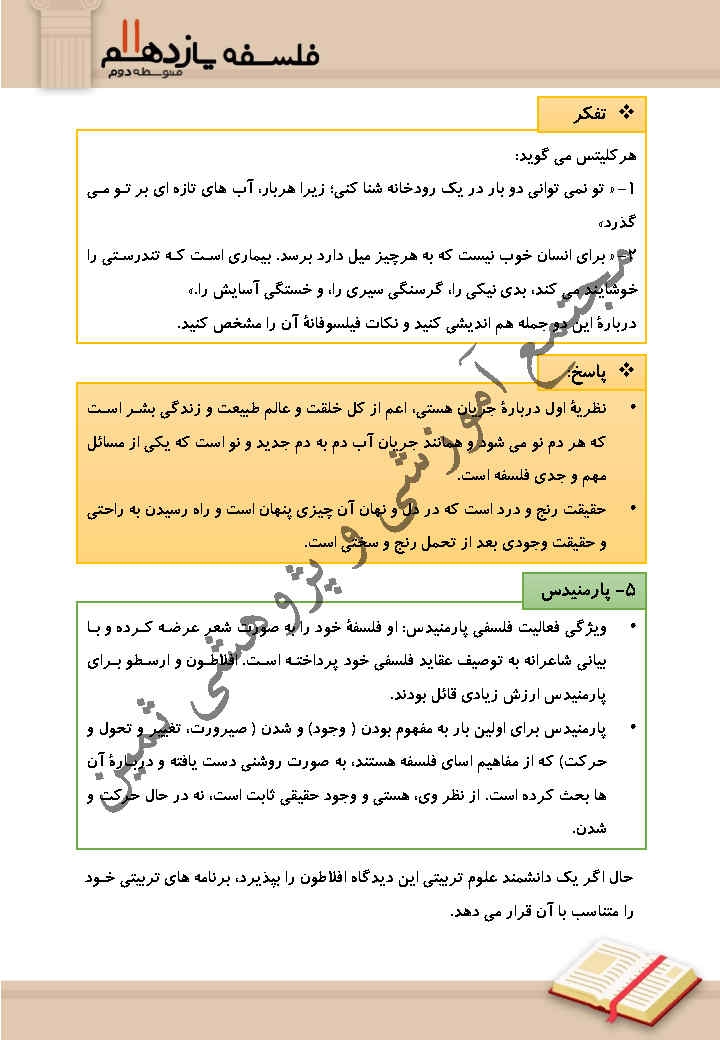 فلسفه یازدهم ۱۱
متوسطه دوم
❖ تفکر
هرکلیتس می گوید:
۱- « تو نمی توانی دو بار در یک رودخانه شنا کنی؛ زیرا هربار، آب های تازه ای بر تو می
گذرد»
۲- « برای انسان خوب نیست که به هرچیز میل دارد برسد. بیماری است که تندرستی را
خوشایند می کند، بدی نیکی را، گرسنگی سیری را، و خستگی آسایش را.»
دربارهٔ این دو جمله هم اندیشی کنید و نکات فیلسوفانهٔ آن را مشخص کنید.
❖ پاسخ:
• نظریهٔ اول دربارهٔ جریان هستی، اعم از کل خلقت و عالم طبیعت و زندگی بشر است
که هر دم نو می شود و همانند جریان آب دم به دم جدید و نو است که یکی از مسائل
مهم و جدی فلسفه است.
• حقیقت رنج و درد است که در دل و نهان آن چیزی پنهان است و راه رسیدن به راحتی
و حقیقت وجودی بعد از تحمل رنج و سختی است.
۵- پارمنیدس
• ویژگی فعالیت فلسفی پارمنیدس: او فلسفهٔ خود را به صورت شعر عرضه کرده و با
بیانی شاعرانه به توصیف عقاید فلسفی خود پرداخته است. افلاطون و ارسطو برای
پارمنیدس ارزش زیادی قائل بودند.
• پارمنیدس برای اولین بار به مفهوم بودن ( وجود) و شدن ( صیرورت، تغییر و تحول و
حرکت) که از مفاهیم اسای فلسفه هستند، به صورت روشنی دست یافته و دربارهٔ آن
ها بحث کرده است. از نظر وی، هستی و وجود حقیقی ثابت است، نه در حال حرکت و
شدن.
حال اگر یک دانشمند علوم تربیتی این دیدگاه افلاطون را بپذیرد، برنامه های تربیتی خود
را متناسب با آن قرار می دهد.
مجتمع آموزشی و پژوهشی ثمین